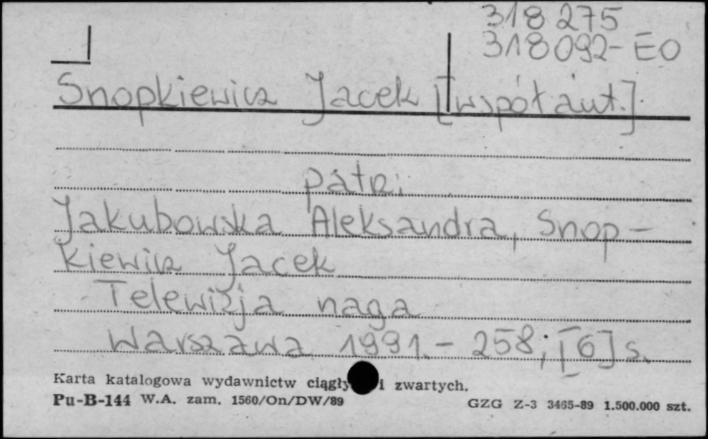 318 275
318092-EO
Snopkiewicz Jacek [współaut.]
patrz:
Jakubowska Aleksandra, Snop-
kiewicz Jacek
Telewizja naga
Warszawa 1991.- 258; [6] s.
Karta katalogowa wydawnictw ciągły i zwartych.
Pu-B-144 W.A. zam. 1560/On/DW/89
GZG Z-3 3465-89 1.500.000 szt.